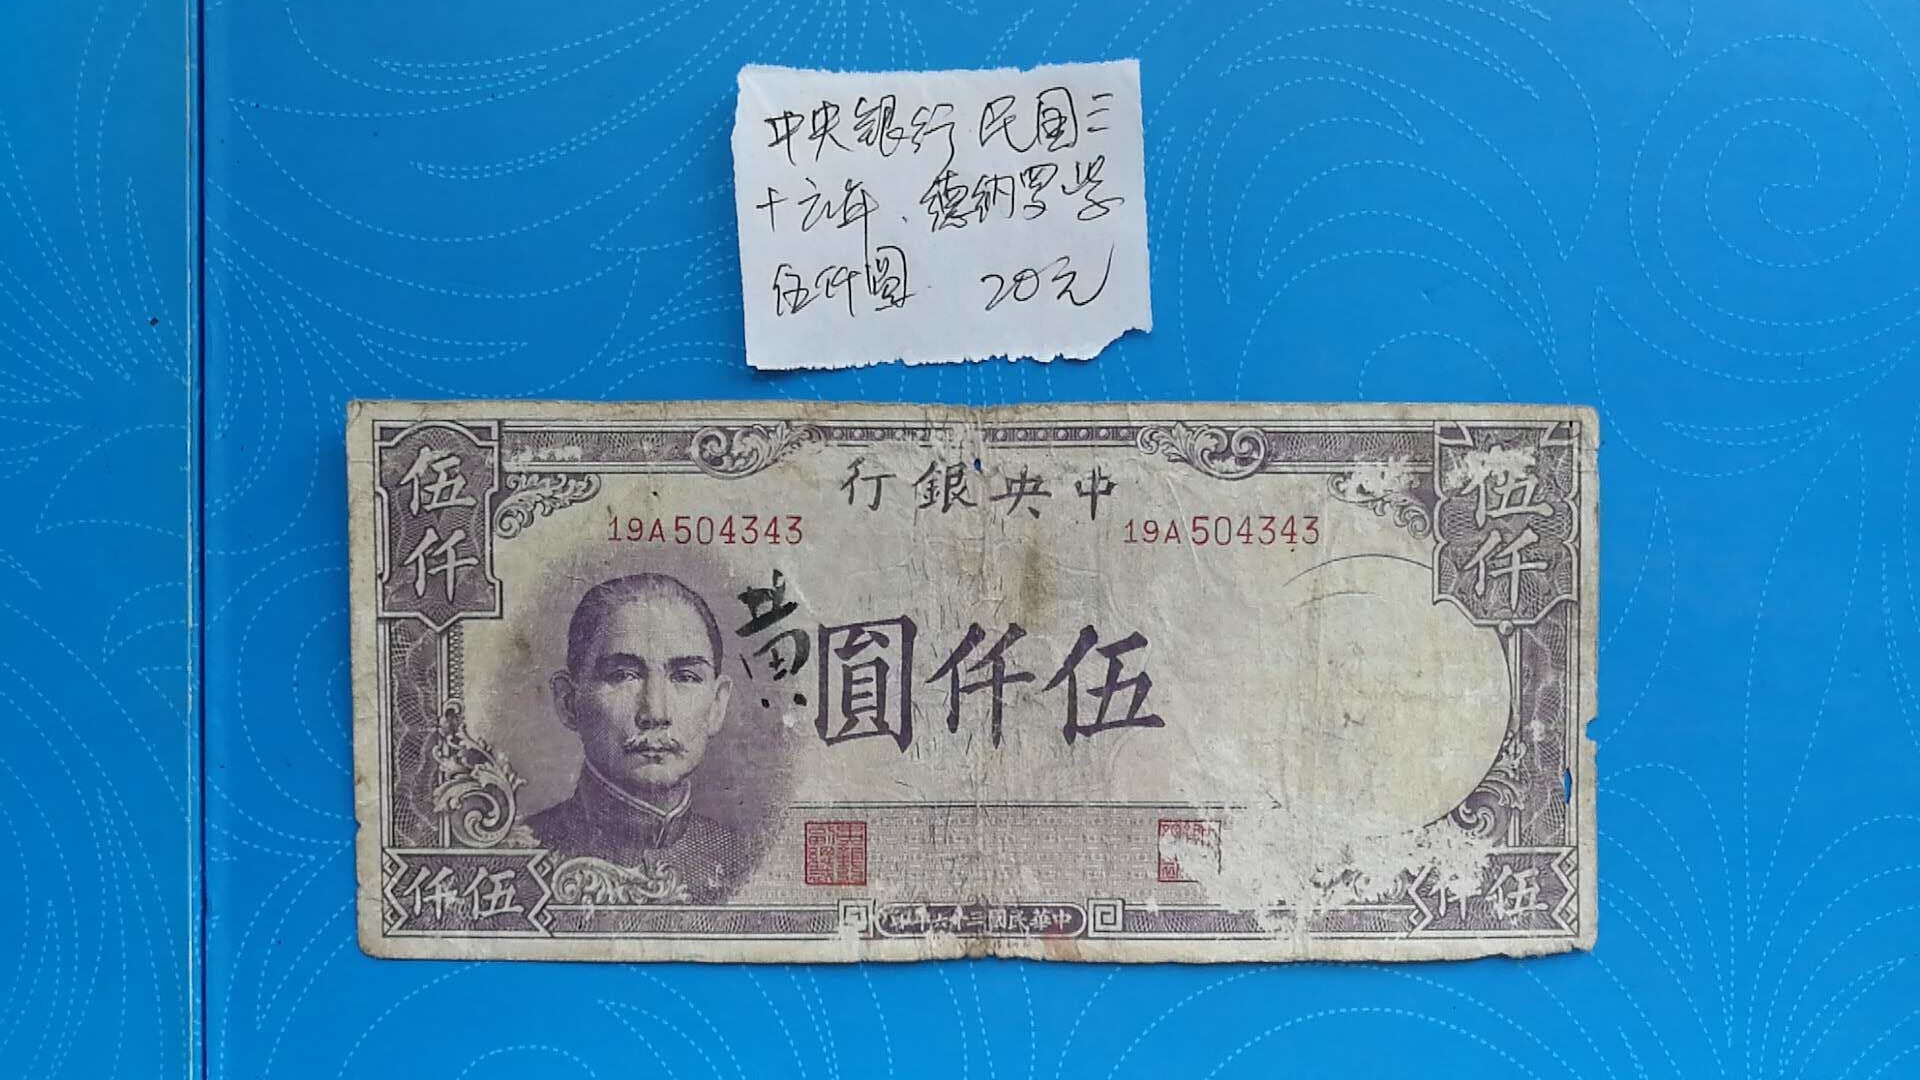 中央银行 民国三
十六年、德纳罗崇
伍仟圆 20元
伍仟
行銀央中
伍仟
19A504343
19A504343
黄
圓仟伍
仟伍
印年六十三國民華中
仟伍